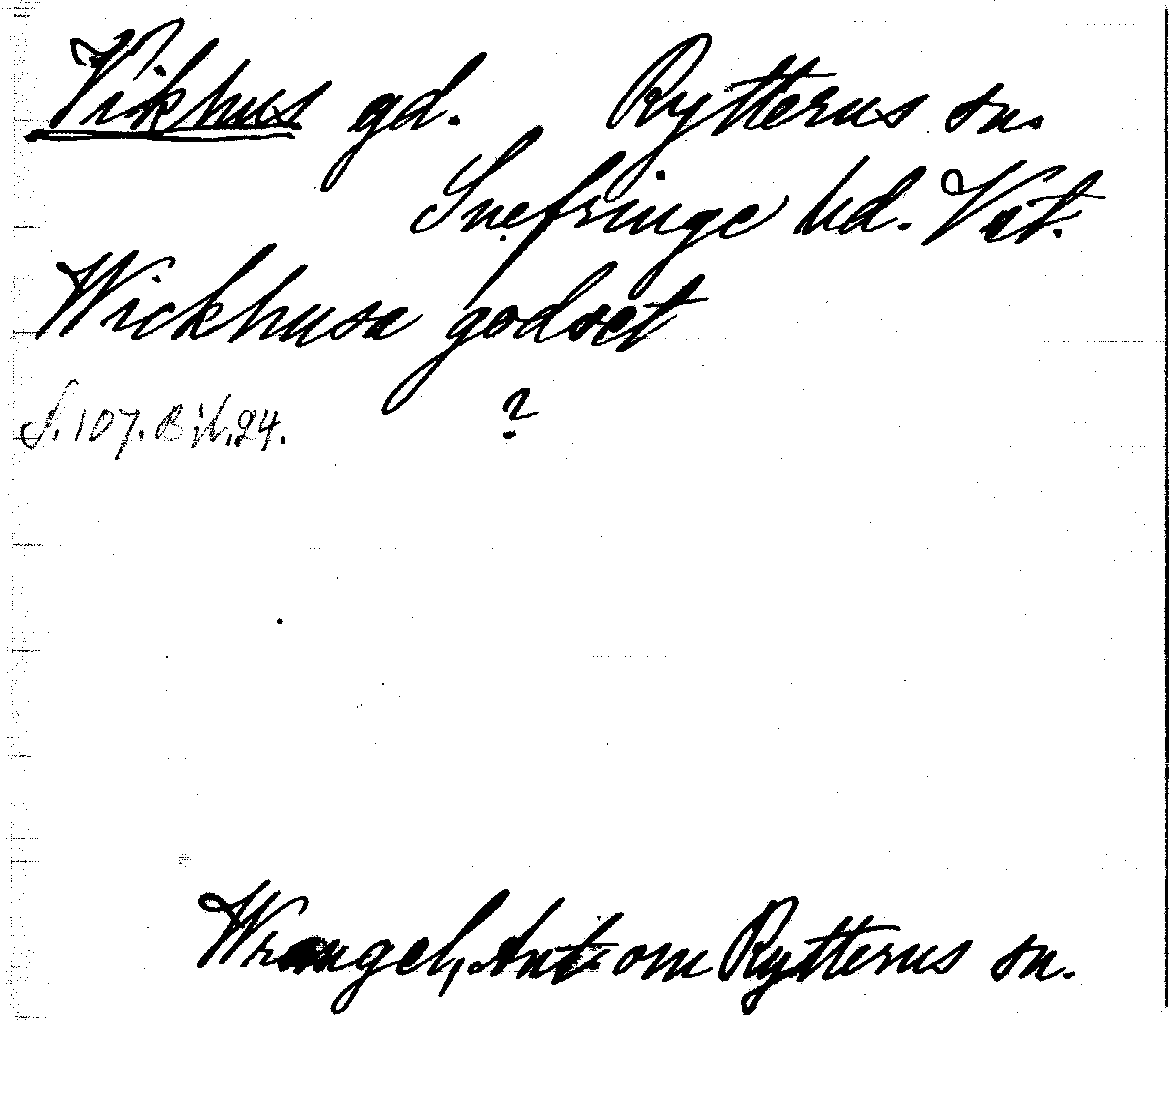 Vikhus gd. Rytterus sn.
Snefringe hd. Vst.
Wickhusa godset
S. 107. Bil. 24. ?
Wrangel, Ant. om Rytterus sn.